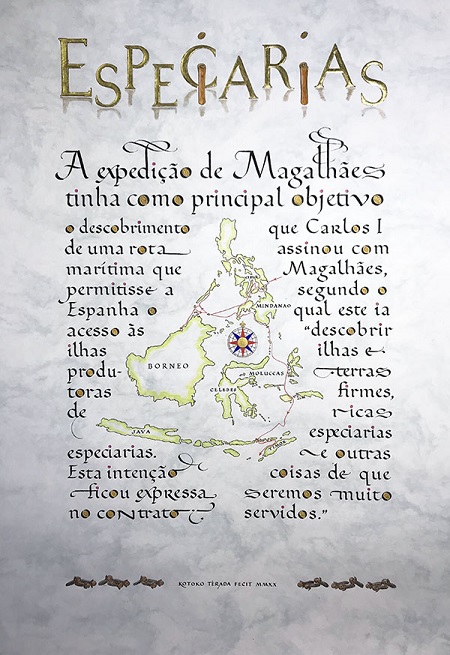 ESPECIARIAS
A expedição de Magalhães
tinha como principal objetivo
o descobrimento
de uma rota
marítima que
permitisse a
Espanha o
acesso às
ilhas
produ-
toras
de
especiarias.
Esta intenção
ficou expressa
no contrato
que Carlos I
assinou com
Magalhães,
segundo o
qual este ia
“descobrir
ilhas e
terras
firmes,
ricas
especiarias
e outras
coisas de que
seremos muito
servidos.”
MINDANAO
BORNEO
MOLUCCAS
CELEBES
JAVA
TIMOR
KOTOKO TERADA FECIT MMXX